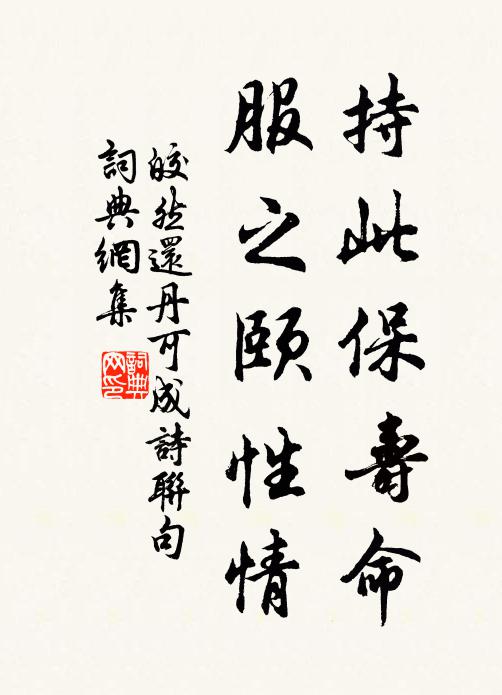 持此保壽命
服之頤性情
皎然還丹可成詩聯句
詞典網集
詞典网印